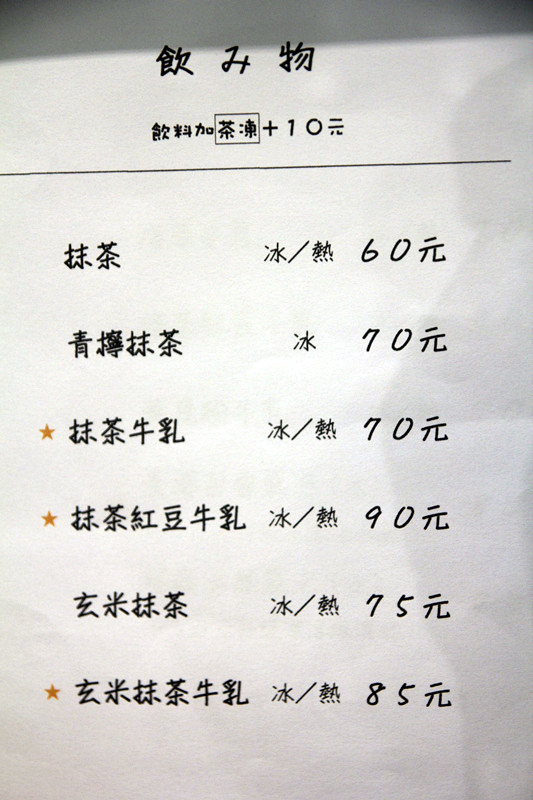 飲み物
飲料加茶凍＋１０元
抹茶 冰／熱 ６０元
青檸抹茶 冰 ７０元
★ 抹茶牛乳 冰／熱 ７０元
★ 抹茶紅豆牛乳 冰／熱 ９０元
玄米抹茶 冰／熱 ７５元
★ 玄米抹茶牛乳 冰／熱 ８５元